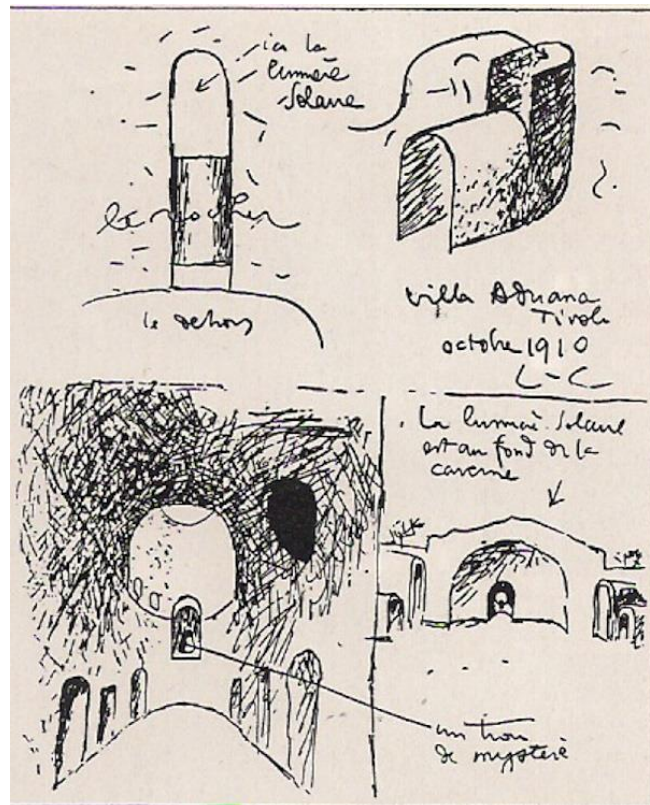 ici la
lumière
solaire
le rocher
le dehors
villa Adriana
Tivoli
octobre 1910
L-C
La lumiè. solaire
est au fond de la
caverne
un trou
de mystère